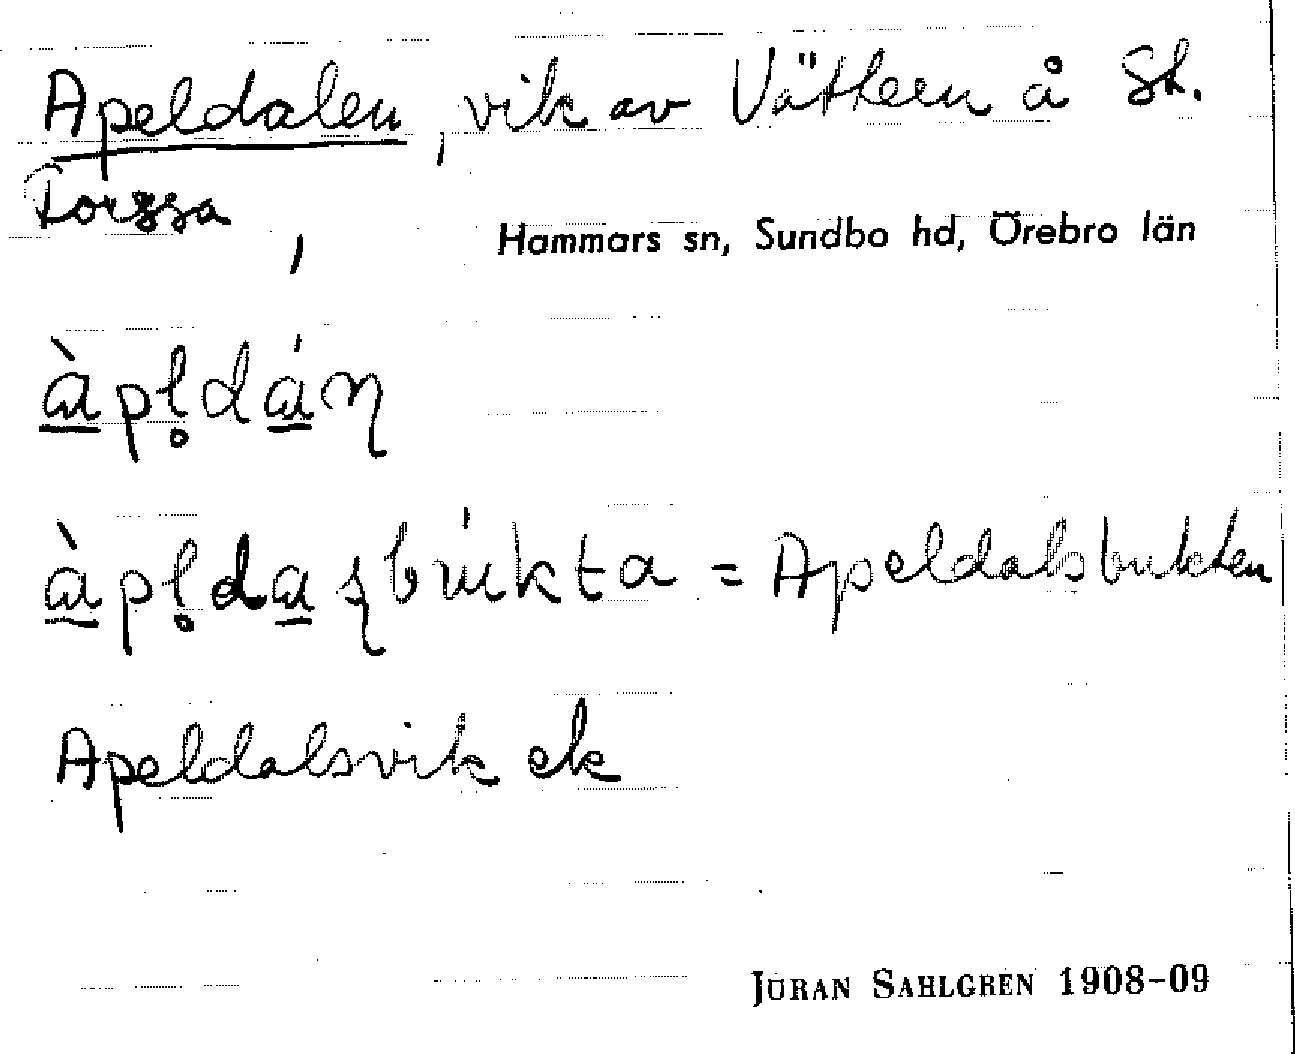 Apeldalen, vik av Vättern å St.
Forssa,
Hammars sn, Sundbo hd, Örebro län
à̲pl̥dá̲n
à̲pl̥da̲ʂbúkta = Apeldalsbukten
Apeldalsvik ek
JÖRAN SAHLGREN 1908-09